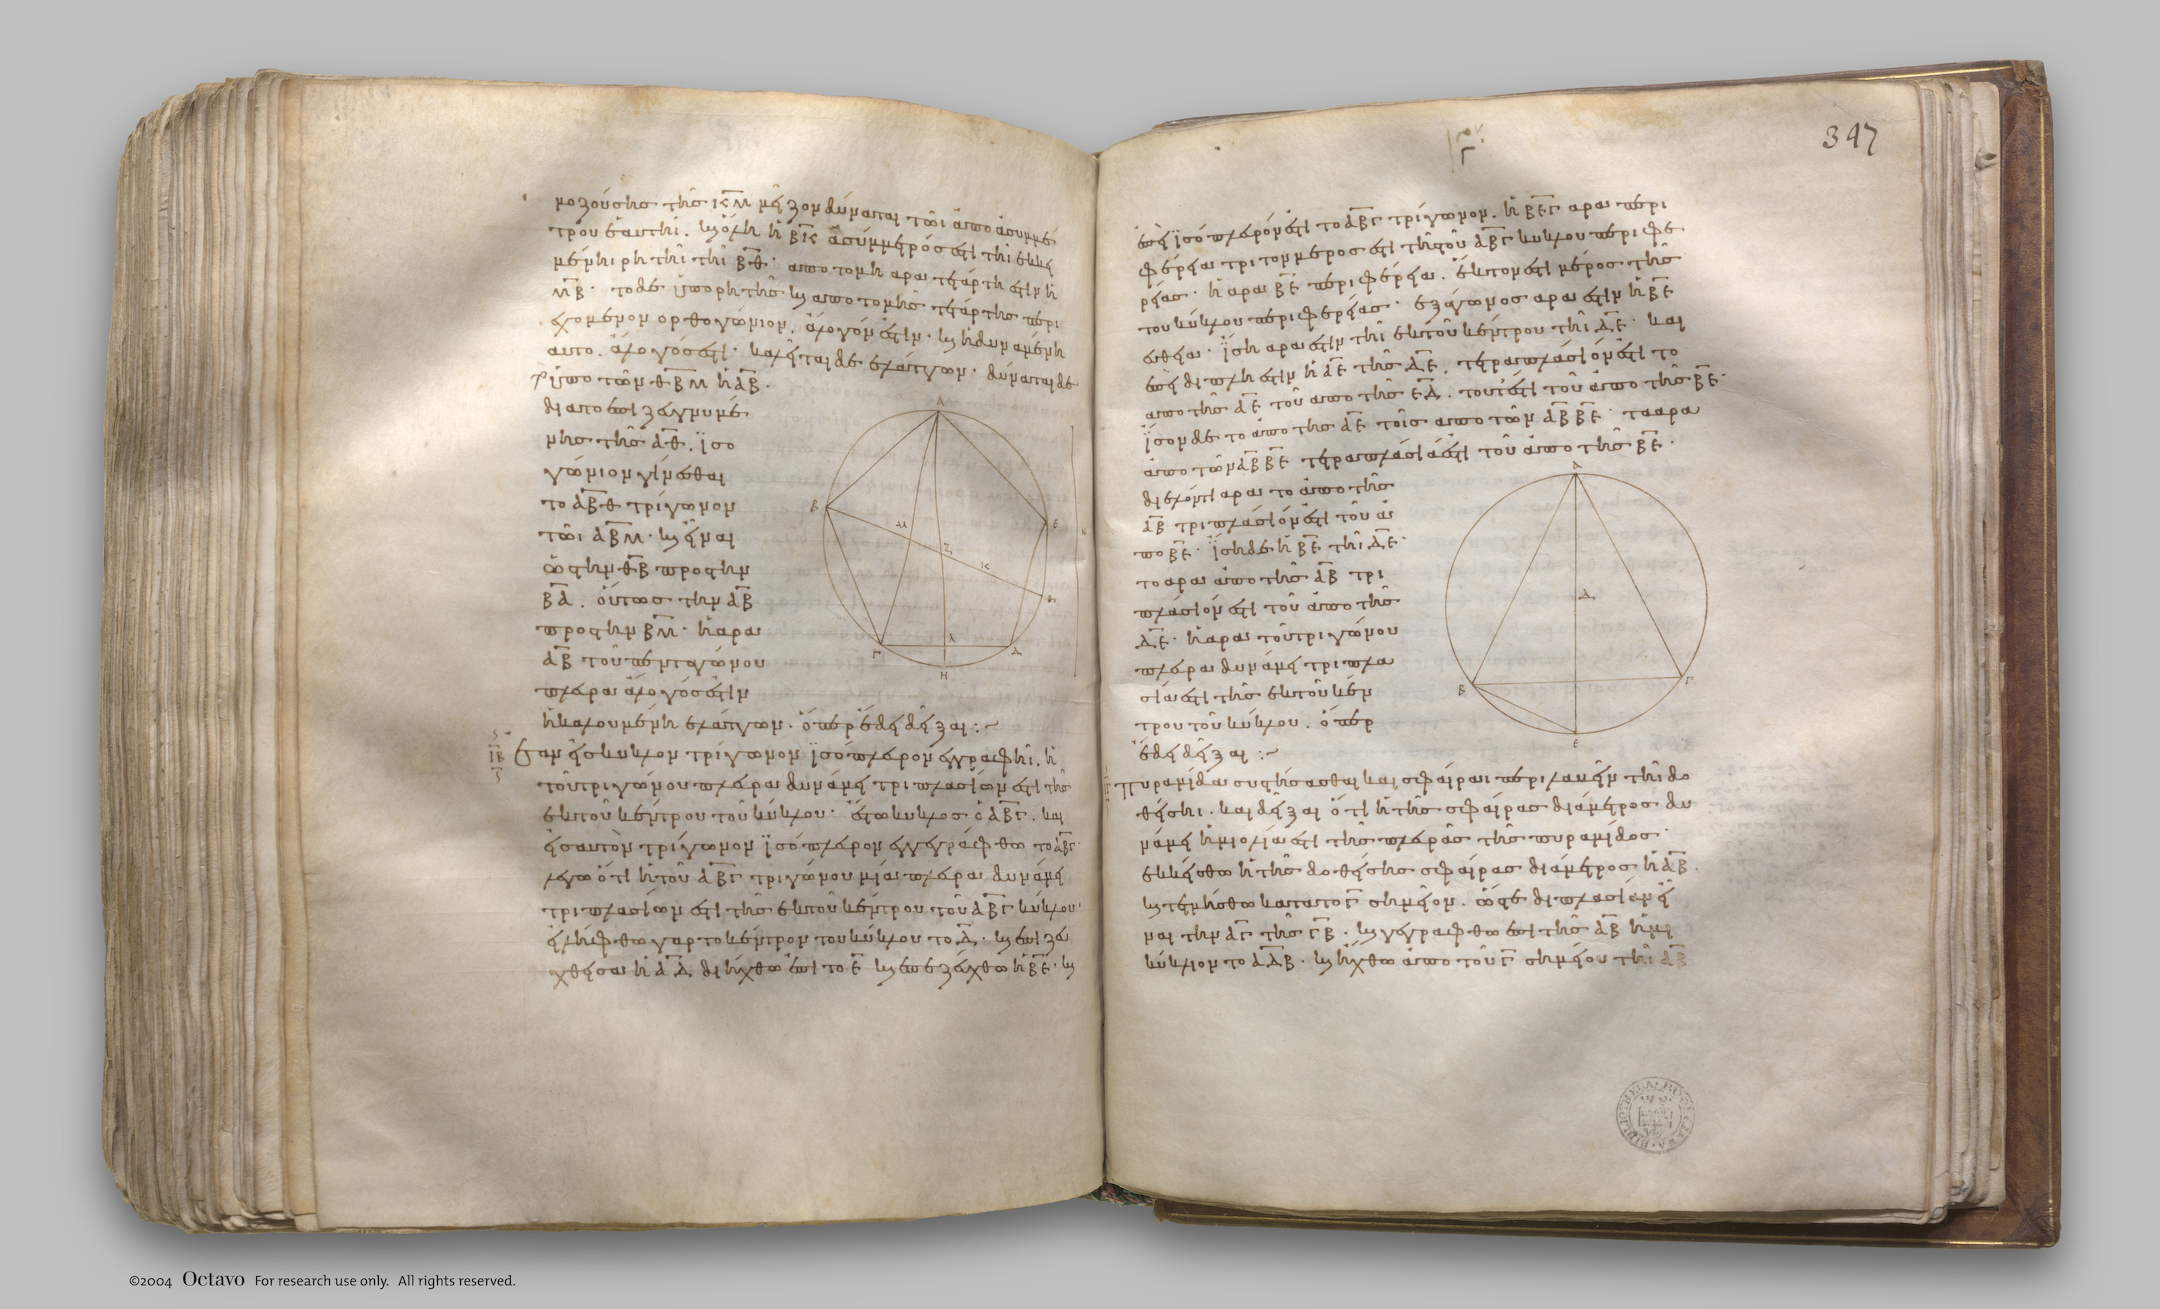 μοζούσης τῆς ΚΜ μεῖζον δύναται τῶι ἀπὸ ἀσυμμέ
τρου ἑαυτῆι. καὶ ὅλη ἡ ΒΚ ἀσύμμετρός ἐστι τῆι ἐκκει
μένηι ῥητῆι τῆι ΒΘ· ἀποτομὴ ἄρα τετάρτη ἐστὶν ἡ
ΜΒ· τὸ δὲ ὑπὸ ῥητῆς καὶ ἀποτομῆς τετάρτης περι
εχόμενον ὀρθογώνιον, ἄλογόν ἐστιν· καὶ ἡ δυναμένη
αὐτὸ. ἄλογός ἐστι· καλεῖται δὲ ἐλάττων· δύναται δὲ
ὑπὸ τῶν ΘΒΜ ἡ ΑΒ.
διὰ τὸ ἐπιζευγνυμέ
νης τῆς ΑΘ, ἰσο
γώνιον γίνεσθαι
τὸ ΑΒΘ τρίγωνον
τῶι ΑΒΜ· καὶ εἶναι
ὡς τὴν ΘΒ πρὸς τὴν
ΒΑ, οὕτως τὴν ΑΒ
πρὸς τὴν ΒΜ· ἡ ἄρα
ΑΒ τοῦ πενταγώνου
πλευρὰ ἄλογός ἐστιν
ἡ καλουμένη ἐλάττων· ὅπερ ἔδει δεῖξαι :~
Α Β Ε Μ Ζ Κ Θ Λ Γ Δ Η
ΙΒ Ἐὰν εἰς κύκλον τρίγωνον ἰσόπλευρον ἐγγραφῆι, ἡ
τοῦ τριγώνου πλευρὰ δυνάμει τριπλασίων ἐστὶ τῆς
ἐκ τοῦ κέντρου τοῦ κύκλου· ἔστω κύκλος ὁ ΑΒΓ, καὶ
εἰς αὐτὸν τρίγωνον ἰσόπλευρον ἐγγεγράφθω τὸ ΑΒΓ·
λέγω ὅτι ἡ τοῦ ΑΒΓ τριγώνου μία πλευρὰ δυνάμει
τριπλασίων ἐστὶ τῆς ἐκ τοῦ κέντρου τοῦ ΑΒΓ κύκλου·
εἰλήφθω γὰρ τὸ κέντρον τοῦ κύκλου τὸ Δ· καὶ ἐπιζευ
χθεῖσα ἡ ΑΔ διήχθω ἐπὶ τὸ Ε καὶ ἐπεζεύχθω ἡ ΒΕ· καὶ
347
ἐπεὶ ἰσόπλευρόν ἐστι τὸ ΑΒΓ τρίγωνον, ἡ ΒΕΓ ἄρα περι
φέρεια τρίτον μέρος ἐστὶ τῆς τοῦ ΑΒΓ κύκλου περιφε
ρείας· ἡ ἄρα ΒΕ περιφέρεια, ἕκτον ἐστὶ μέρος τῆς
τοῦ κύκλου περιφερείας· ἑξαγώνου ἄρα ἐστὶν ἡ ΒΕ
εὐθεῖα· ἴση ἄρα ἐστὶν τῆι ἐκ τοῦ κέντρου τῆι ΔΕ· καὶ
ἐπεὶ διπλῆ ἐστὶν ἡ ΑΕ τῆς ΔΕ, τετραπλάσιόν ἐστι τὸ
ἀπὸ τῆς ΑΕ τοῦ ἀπὸ τῆς ΕΔ, τουτέστι τοῦ ἀπὸ τῆς ΒΕ·
ἴσον δὲ τὸ ἀπὸ τῆς ΑΕ τοῖς ἀπὸ τῶν ΑΒ ΒΕ· τὰ ἄρα
ἀπὸ τῶν ΑΒ ΒΕ τετραπλάσιά ἐστι τοῦ ἀπὸ τῆς ΒΕ·
διελόντι ἄρα τὸ ἀπὸ τῆς
ΑΒ τριπλάσιόν ἐστι τοῦ ἀ
πὸ ΒΕ· ἴση δὲ ἡ ΒΕ τῆι ΔΕ·
τὸ ἄρα ἀπὸ τῆς ΑΒ τρι
πλάσιόν ἐστι τοῦ ἀπὸ τῆς
ΔΕ· ἡ ἄρα τοῦ τριγώνου
πλευρὰ δυνάμει τριπλα
σία ἐστὶ τῆς ἐκ τοῦ κέν
τρου τοῦ κύκλου. ὅπερ
ἔδει δεῖξαι :~
Α Δ Β Γ Ε
Πυραμίδα συστήσασθαι καὶ σφαίραι περιλαβεῖν τῆι δο
θείσηι. καὶ δεῖξαι ὅτι ἡ τῆς σφαίρας διάμετρος δυ
νάμει ἡμιολία ἐστὶ τῆς πλευρᾶς τῆς πυραμίδος·
ἐκκείσθω ἡ τῆς δοθείσης σφαίρας διάμετρος ἡ ΑΒ.
καὶ τετμήσθω κατὰ τὸ Γ σημεῖον, ὥστε διπλασίαν εἶ
ναι τὴν ΑΓ τῆς ΓΒ· καὶ γεγράφθω ἐπὶ τῆς ΑΒ ἡμι
κύκλιον τὸ ΑΔΒ· καὶ ἤχθω ἀπὸ τοῦ Γ σημείου τῆι ΑΒ
©2004 Octavo For research use only. All rights reserved.